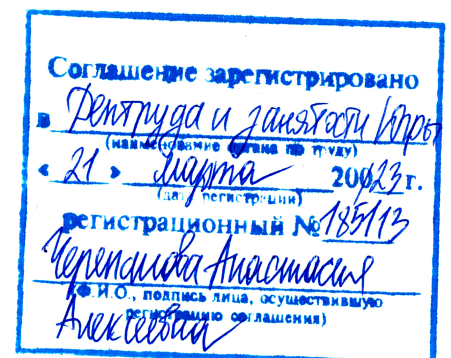 Соглашение зарегистрировано
в Дептруда и занятости Югры
(наименование органа по труду)
« 21 » марта 200/23 г.
(дата регистрации)
регистрационный № 185/13
Черепанова Анастасия
(Ф.И.О., подпись лица, осуществившую
регистрацию соглашения)
Алексеевна